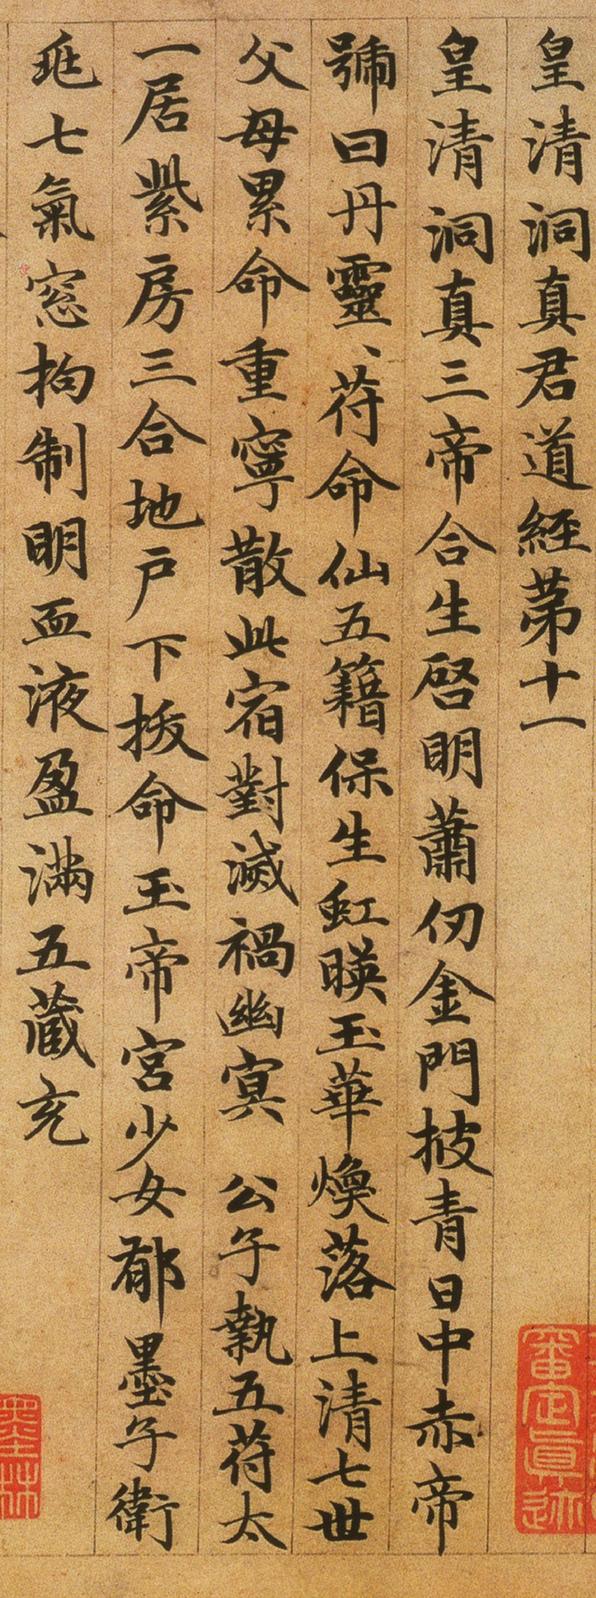 皇清洞真君道經苐十一
皇清洞真三帝合生啓明蕭仞金門披青日中赤帝
號曰丹靈、苻命仙五籍保生虹暎玉華煥落上清七世
父母累命重寧散此宿對滅禍幽冥 公子執五苻太
一居紫房三合地戶下拔命玉帝宮少女郁墨子衛
七氣窓拘制明血液盈滿五藏充
審定真迹
墨林